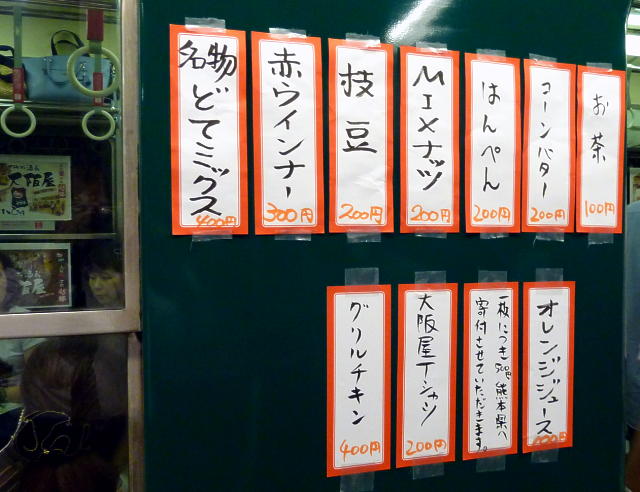 名物どてミックス
400円
赤ウインナー
300円
枝豆
200円
MIXナッツ
200円
はんぺん
200円
コーンバター
200円
お茶
100円
グリルチキン
400円
大阪屋Tシャツ
200円
一枚につき500円熊本県へ
寄付させていただきます。
オレンジジュース
100円
大阪屋